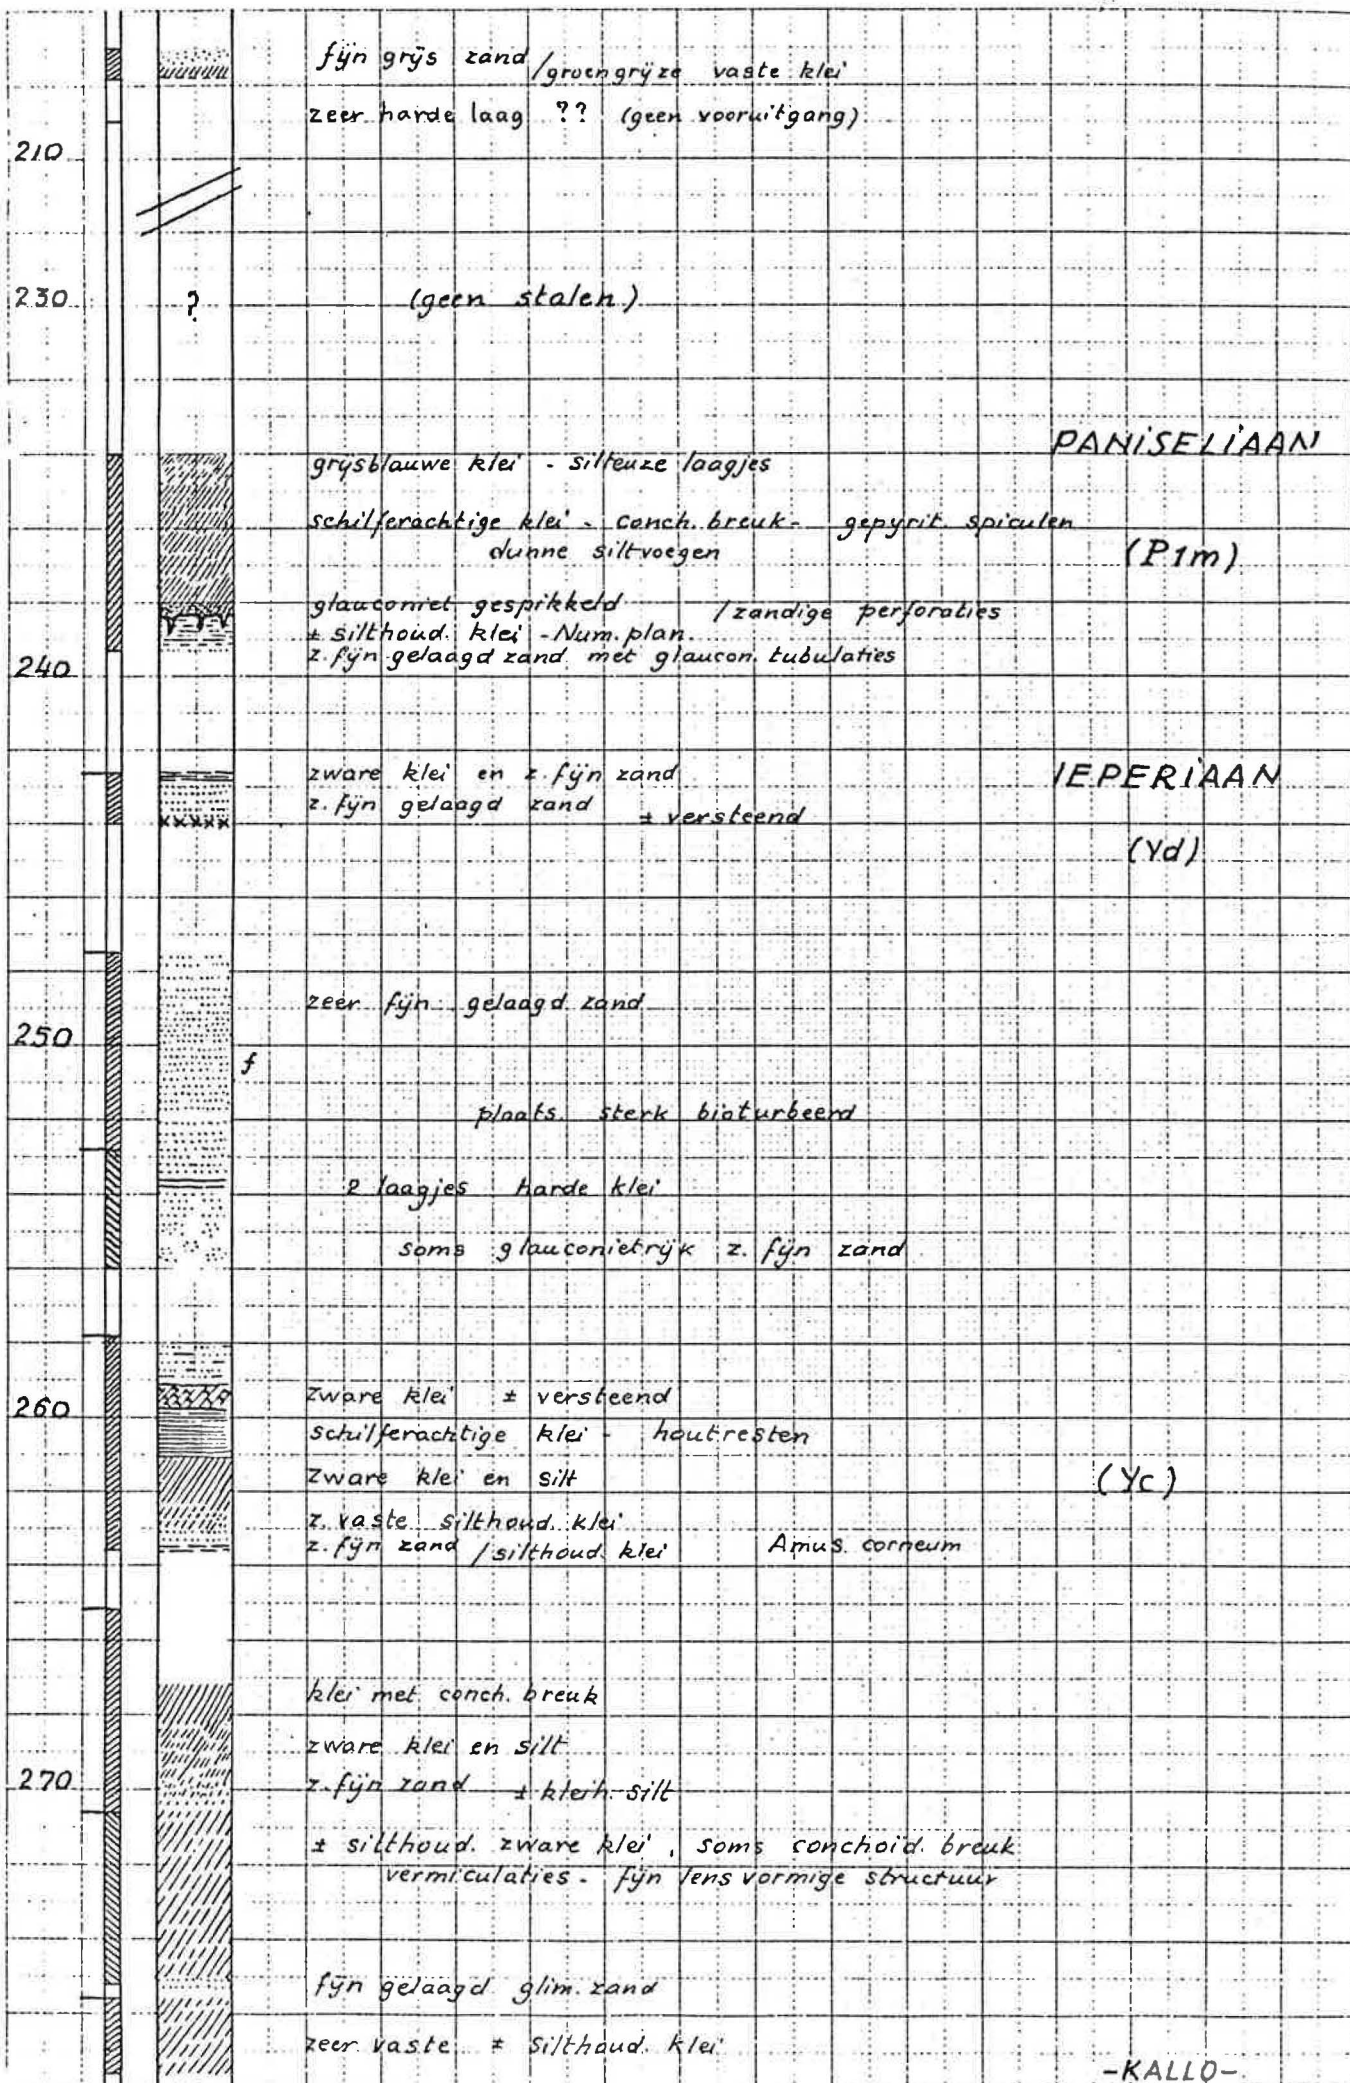 fijn grijs zand / groengrijze vaste klei
zeer harde laag ?? (geen vooruitgang)
210
230 ? (geen stalen)
PANiSELiAAN
grijsblauwe klei - silteuze laagjes
schilferachtige klei - conch. breuk - gepyrit. spiculen
dunne siltvoegen
(P1m)
glauconiet gespikkeld / zandige perforaties
± silthoud. klei - Num. plan.
z. fijn gelaagd zand met glaucon. tubulaties
240
zware klei en z. fijn zand
IEPERiAAN
z. fijn gelaagd zand ± versteend
(Yd)
zeer fijn gelaagd zand
250
f
plaats. sterk bioturbeerd
2 laagjes harde klei
soms glauconietrijk z. fijn zand
zware klei ± versteend
260
schilferachtige klei - houtresten
zware klei en silt
(Yc)
z. vaste silthoud. klei
z. fijn zand / silthoud. klei Amus. corneum
klei met conch. breuk
zware klei en silt
270
z. fijn zand ± kleih. silt
± silthoud. zware klei, soms conchoid. breuk
vermiculaties - fijn lensvormige structuur
fijn gelaagd glim. zand
zeer vaste ± silthoud. klei
-KALLO-